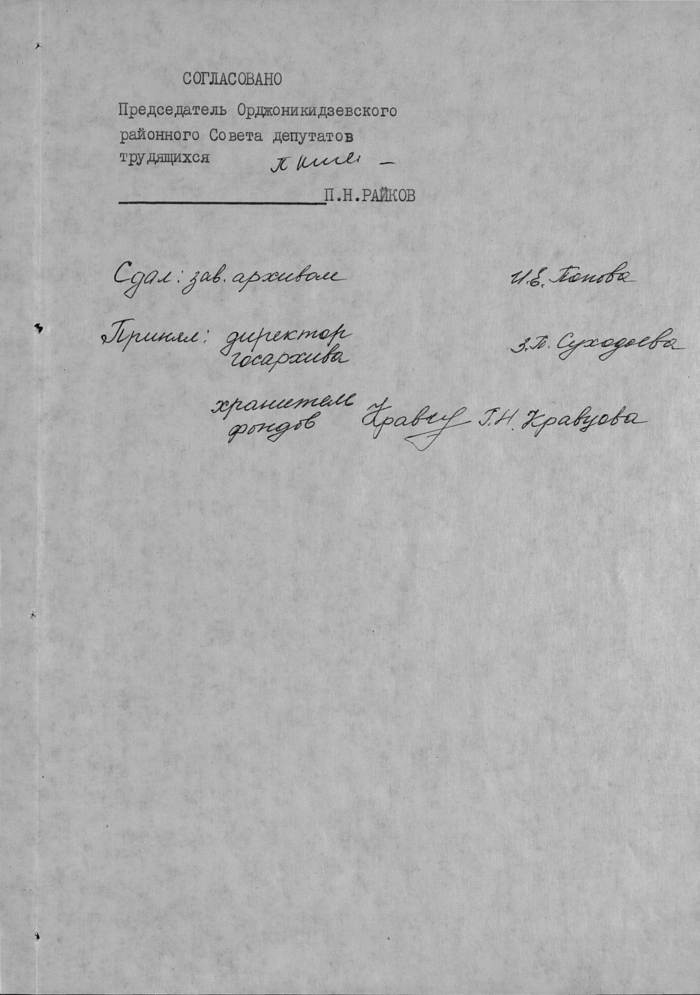 СОГЛАСОВАНО
Председатель Орджоникидзевского
районного Совета депутатов
трудящихся
П.Н.РАЙКОВ
Сдал: зав. архивом И.Е. Попова
Принял: директор
госархива З.П. Суходоева
хранитель
фондов Г.Н. Кравцова